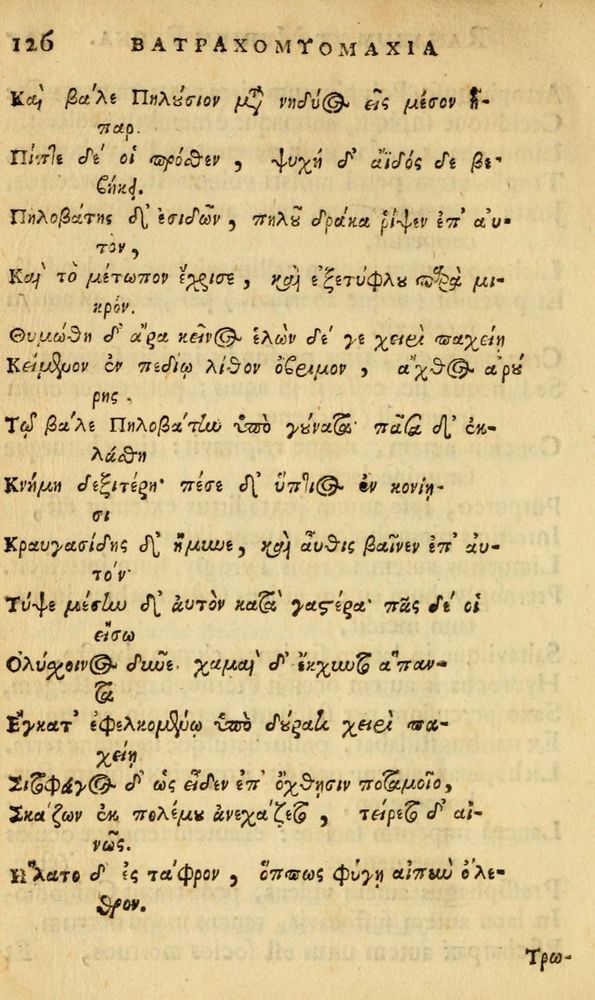 126 ΒΑΤΡΑΧΟΜΥΟΜΑΧΙΑ
Καὶ βάλε Πηλούσιον μ̅τ̅ νηδύος εἰς μέσον ἧ-
παρ.
Πίπτε δέ οἱ πρόσθεν, ψυχή δ' ἀϊδός δε βε-
βήκει.
Πηλοβάτης δ' ἐσιδῶν, πηλοῦ δράκα ῥίψεν ἐπ' αυ-
τὸν,
Καὶ τὸ μέτωπον ἔχρισε, καὶ ἐξετύφλου παρὰ μι-
κρόν.
Θυμώθη δ' ἄρα κεῖνος ἑλὼν δέ γε χειρὶ παχείη
Κείμενον ἐν πεδίῳ λίθον ὄβριμον, ἄχθος ἀρού
ρης.
Τῷ βάλε Πηλοβάτην ὑπὸ γούνατα· πᾶσα δ' ἐκ-
λάσθη
Κνήμη δεξιτέρη· πέσε δ' ὕπτιος ἐν κονίῃ-
σι
Κραυγασίδης δ' ἤμυνε, καὶ αὖθις βαῖνεν ἐπ' αυ-
τόν·
Τύψε μέσην δ' αὐτὸν κατὰ γαστέρα· πᾶς δέ οἱ
εἴσω
Ολύχοινος δῦνε χαμαὶ δ' ἔκχυντο ἅπαν-
τα
Εγκατ' ἐφελκομένῳ ὑπὸ δούρατι χειρὶ πα-
χείῃ
Σιτοφάγος δ' ὡς εἶδεν ἐπ' ὄχθησιν ποταμοῖο,
Σκάζων ἐκ πολέμου ἀνεχάζετο, τείρετο δ' αἰ-
νῶς.
Ηλατο δ' ἐς τάφρον, ὅππως φύγη αἰπὺν ὄλε-
θρον.
Τρω-